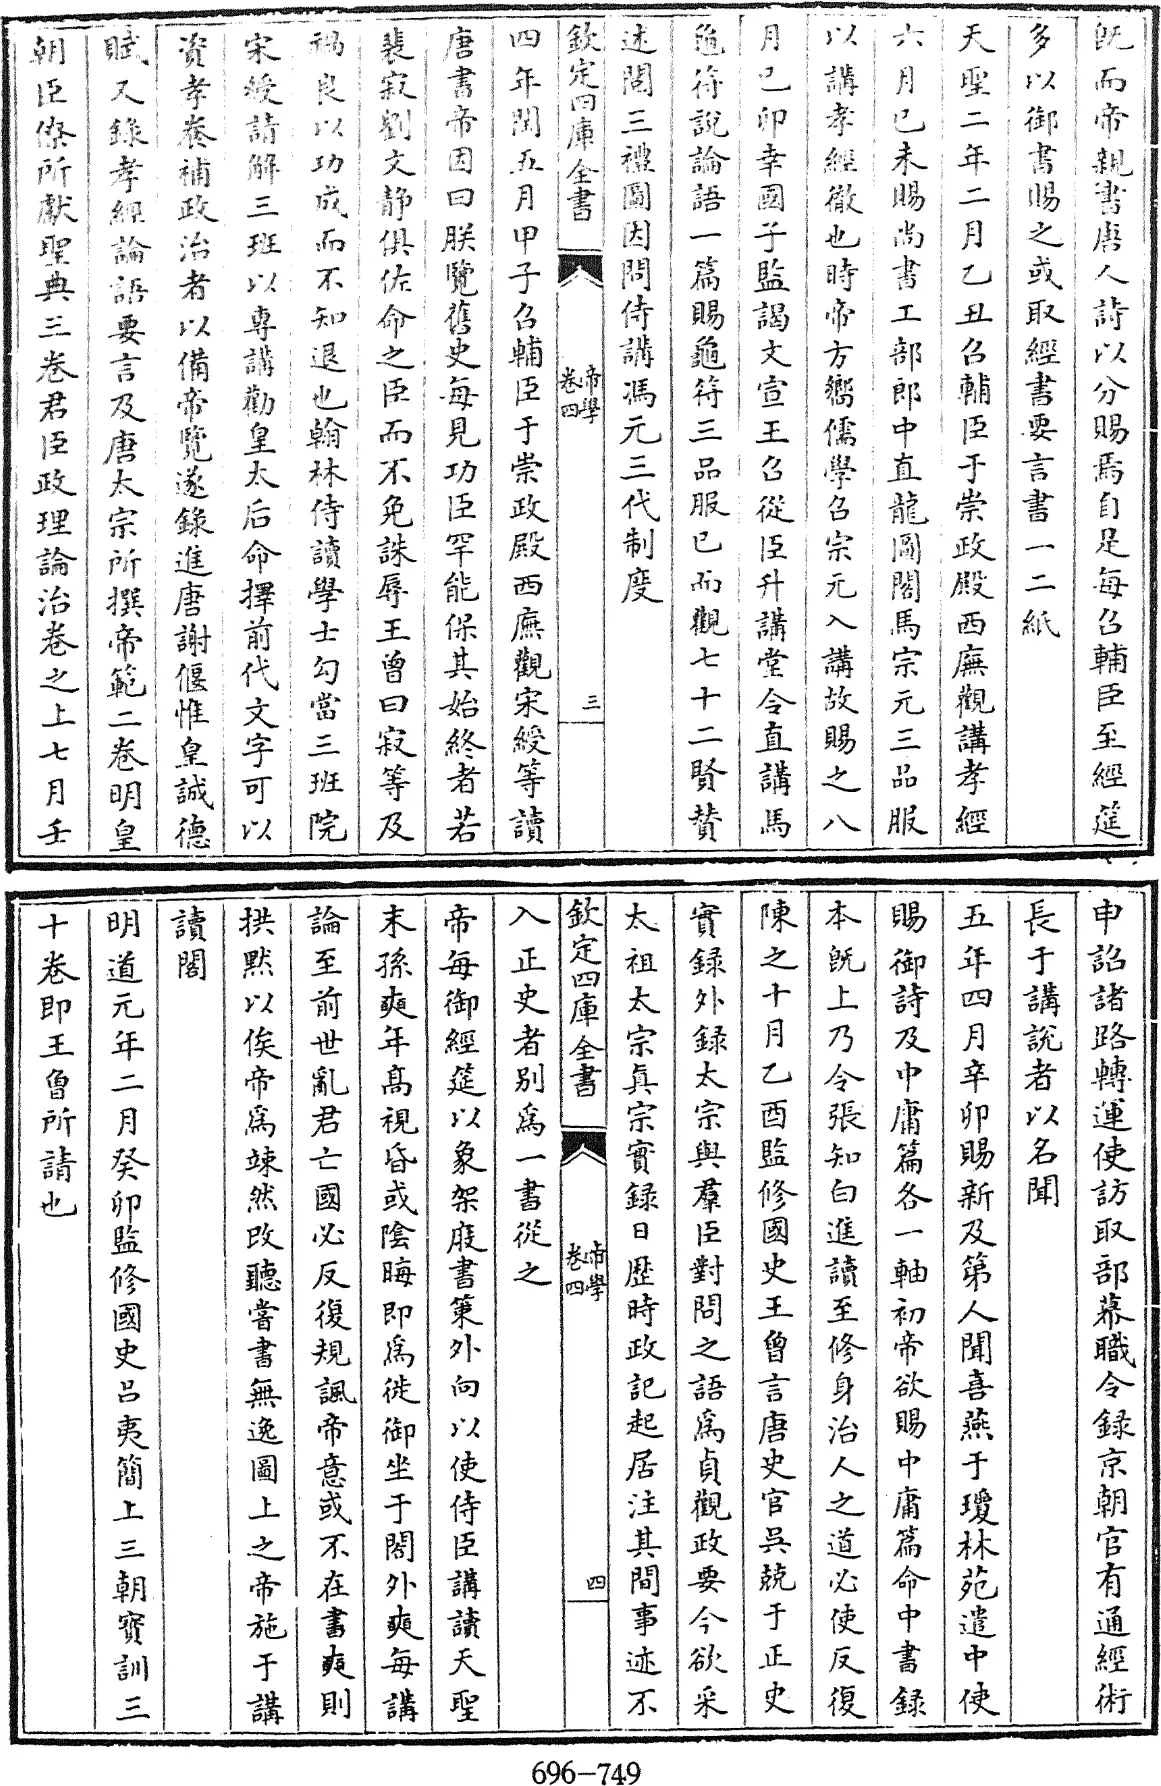 既而帝親書唐人詩以分賜焉自是每召輔臣至經筵
多以御書賜之或取經書要言書一二紙
天聖二年二月乙丑召輔臣于崇政殿西廡觀講孝經
六月己未賜尚書工部郎中直龍圖閣馬宗元三品服
以講孝經徹也時帝方嚮儒學召宗元入講故賜之八
月己卯幸國子監謁文宣王召從臣升講堂令直講馬
龜符說論語一篇賜龜符三品服已而觀七十二賢贊
述閲三禮圖因問侍講馮元三代制度
欽定四庫全書
帝學
卷四
三
四年閏五月甲子召輔臣于崇政殿西廡觀宋綬等讀
唐書帝因曰朕覽舊史每見功臣罕能保其始終者若
裴寂劉文静俱佐命之臣而不免誅辱王曾曰寂等及
禍良以功成而不知退也翰林侍讀學士勾當三班院
宋綬請解三班以專講勸皇太后命擇前代文字可以
資孝養補政治者以備帝覽遂錄進唐謝偃惟皇誡德
賦又錄孝經論語要言及唐太宗所撰帝範二卷明皇
朝臣僚所獻聖典三卷君臣政理論治卷之上七月壬
申詔諸路轉運使訪取部幕職令録京朝官有通經術
長于講說者以名聞
五年四月辛卯賜新及第人聞喜燕于瓊林苑遣中使
賜御詩及中庸篇各一軸初帝欲賜中庸篇命中書録
本既上乃令張知白進讀至修身治人之道必使反復
陳之十月乙酉監修國史王曾言唐史官吳兢于正史
實録外録太宗與羣臣對問之語爲貞觀政要今欲采
太祖太宗真宗實録日歴時政記起居注其間事迹不
欽定四庫全書
帝學
卷四
四
入正史者别爲一書從之
帝每御經筵以象架庋書䇿外向以使侍臣講讀天聖
末孫奭年髙視昏或陰晦即爲徙御坐于閣外奭每講
論至前世亂君亡國必反復規諷帝意或不在書奭則
拱默以俟帝爲竦然改聽嘗書無逸圖上之帝施于講
讀閣
明道元年二月癸卯監修國史呂夷簡上三朝寶訓三
十卷即王曾所請也
696-749